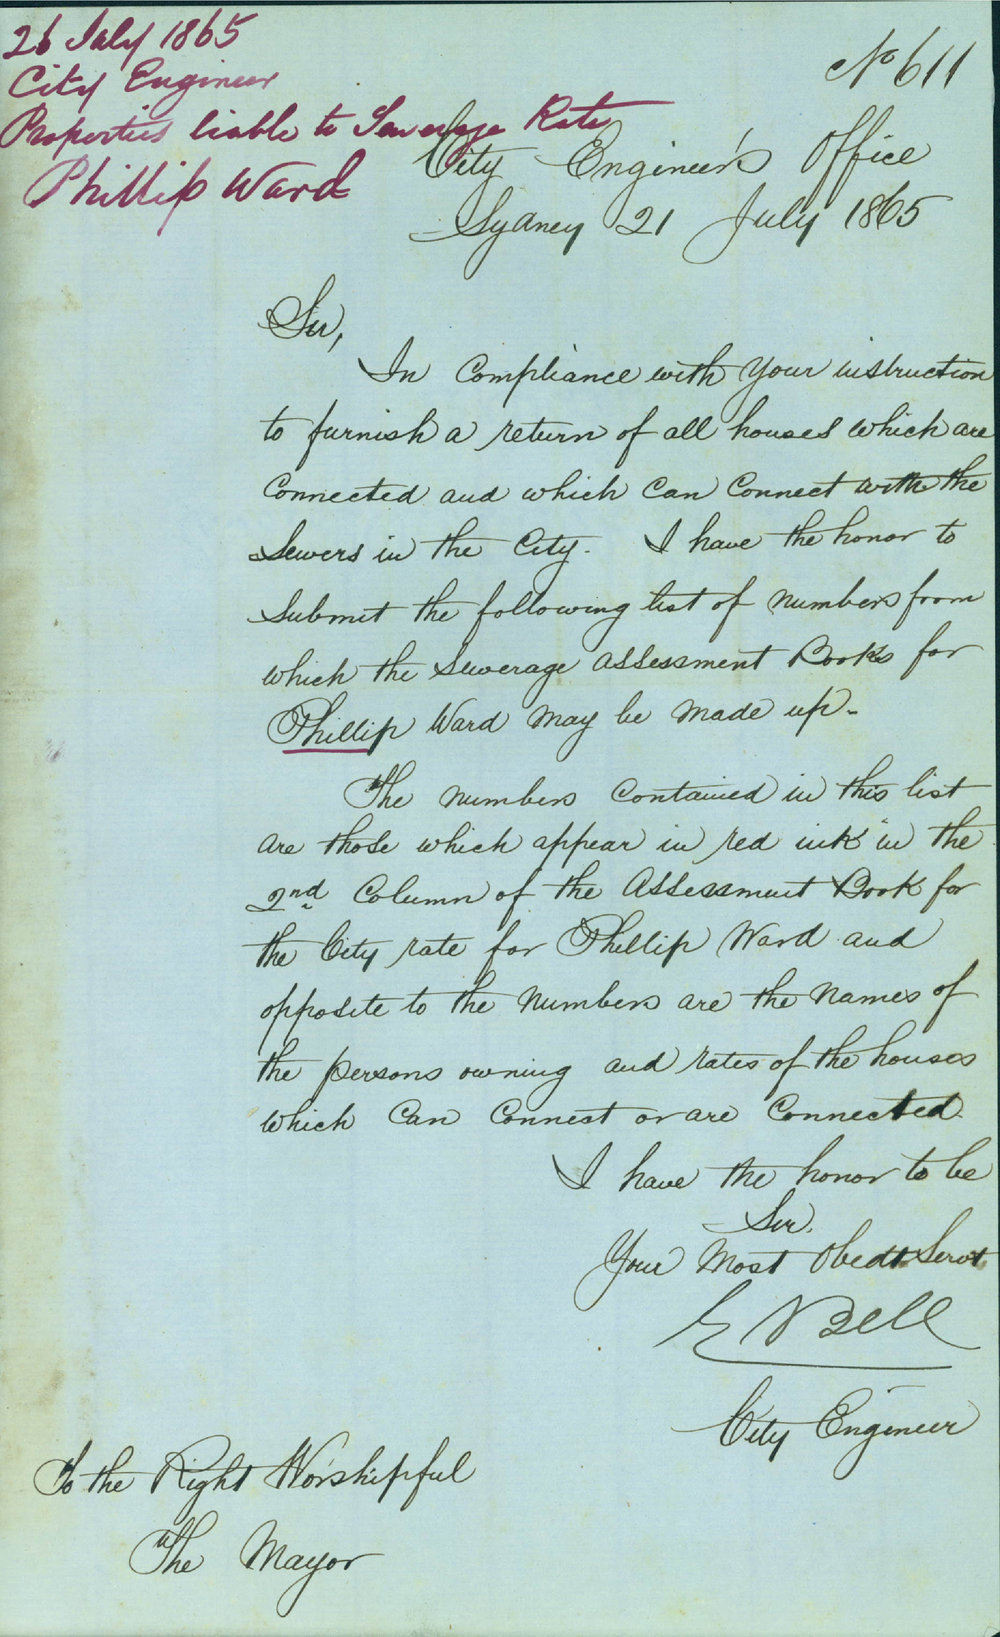 26 July 1865
City Engineer
Properties liable to Sewerage Rate
Phillip Ward
No 611
City Engineer's Office
Sydney 21 July 1865
Sir,
In Compliance with Your instruction
to furnish a return of all houses which are
Connected and which Can Connect with the
Sewers in the City. I have the honor to
Submit the following list of numbers from
which the Sewerage Assessment Books for
Phillip Ward May be Made up-
The numbers Contained in this list
are those which appear in red ink in the
2nd Column of the Assessment Book for
the City rate for Phillip Ward and
opposite to the Numbers are the Names of
the persons owning and rates of the houses
which Can Connect or are Connected
I have the honor to be
Sir.
Your Most Obedt Servt
E Bell
City Engineer
To the Right Worshipful
The Mayor